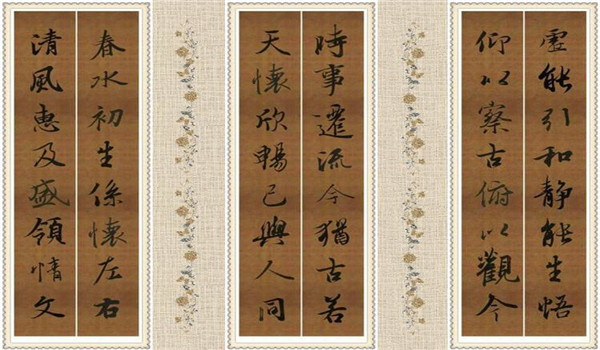 虛能引和靜能生悟
仰以察古俯以觀今
時事遷流今猶古若
天懷欣暢己與人同
春水初生係懷左右
清風惠及盛領情文